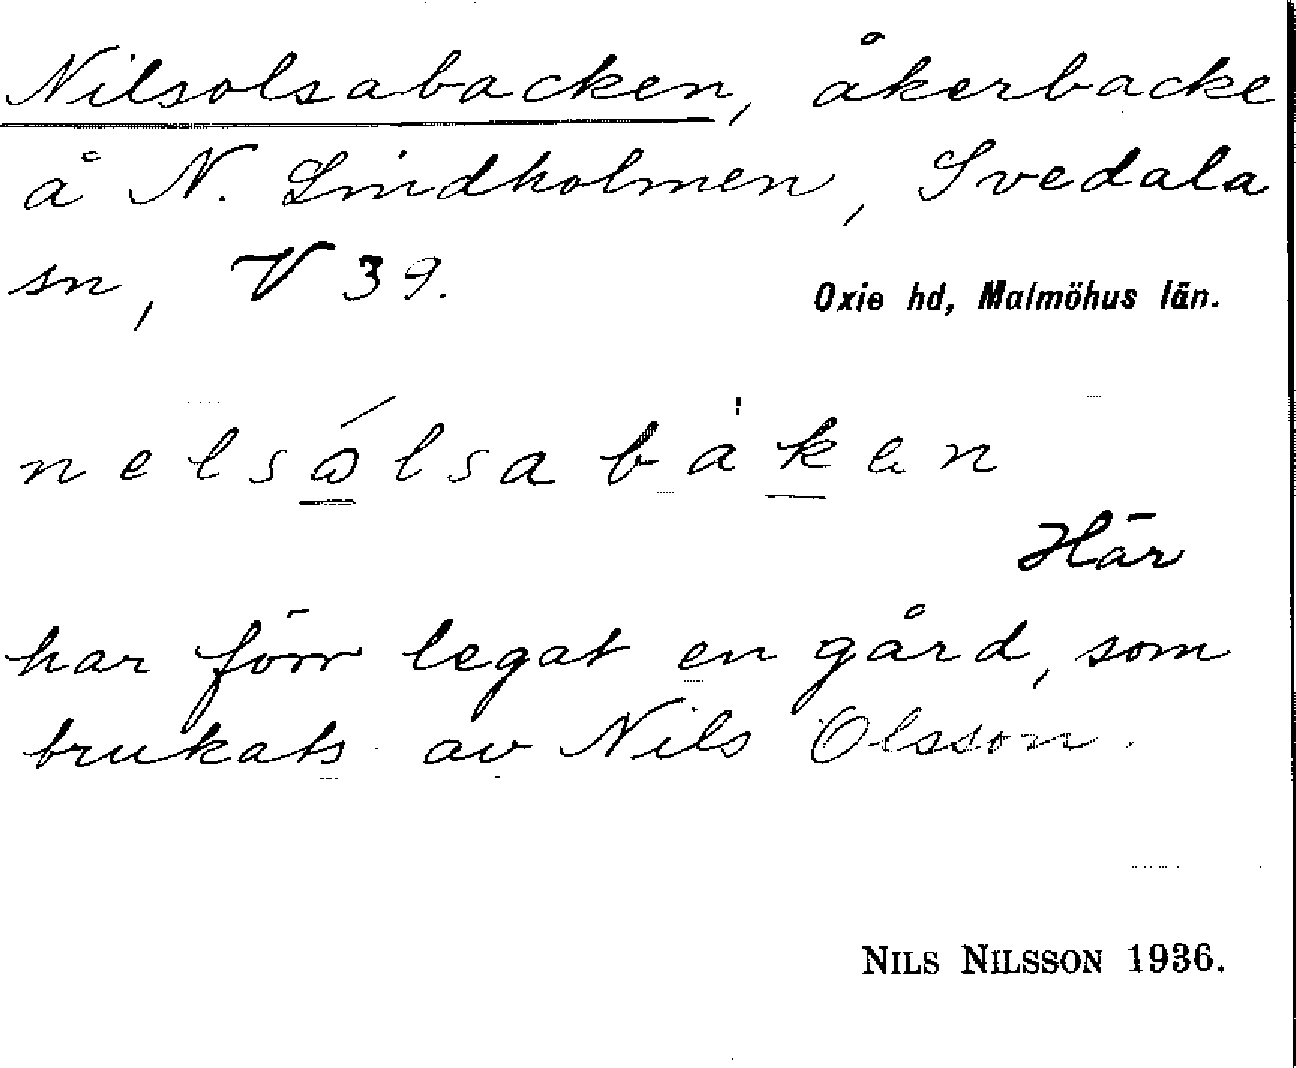 Nilsolsabacken, åkerbacke
å N. Lindholmen, Svedala
sn, V 39.
Oxie hd, Malmöhus län.
Här
har förr legat en gård, som
brukats av Nils Olsson.
NILS NILSSON 1936.